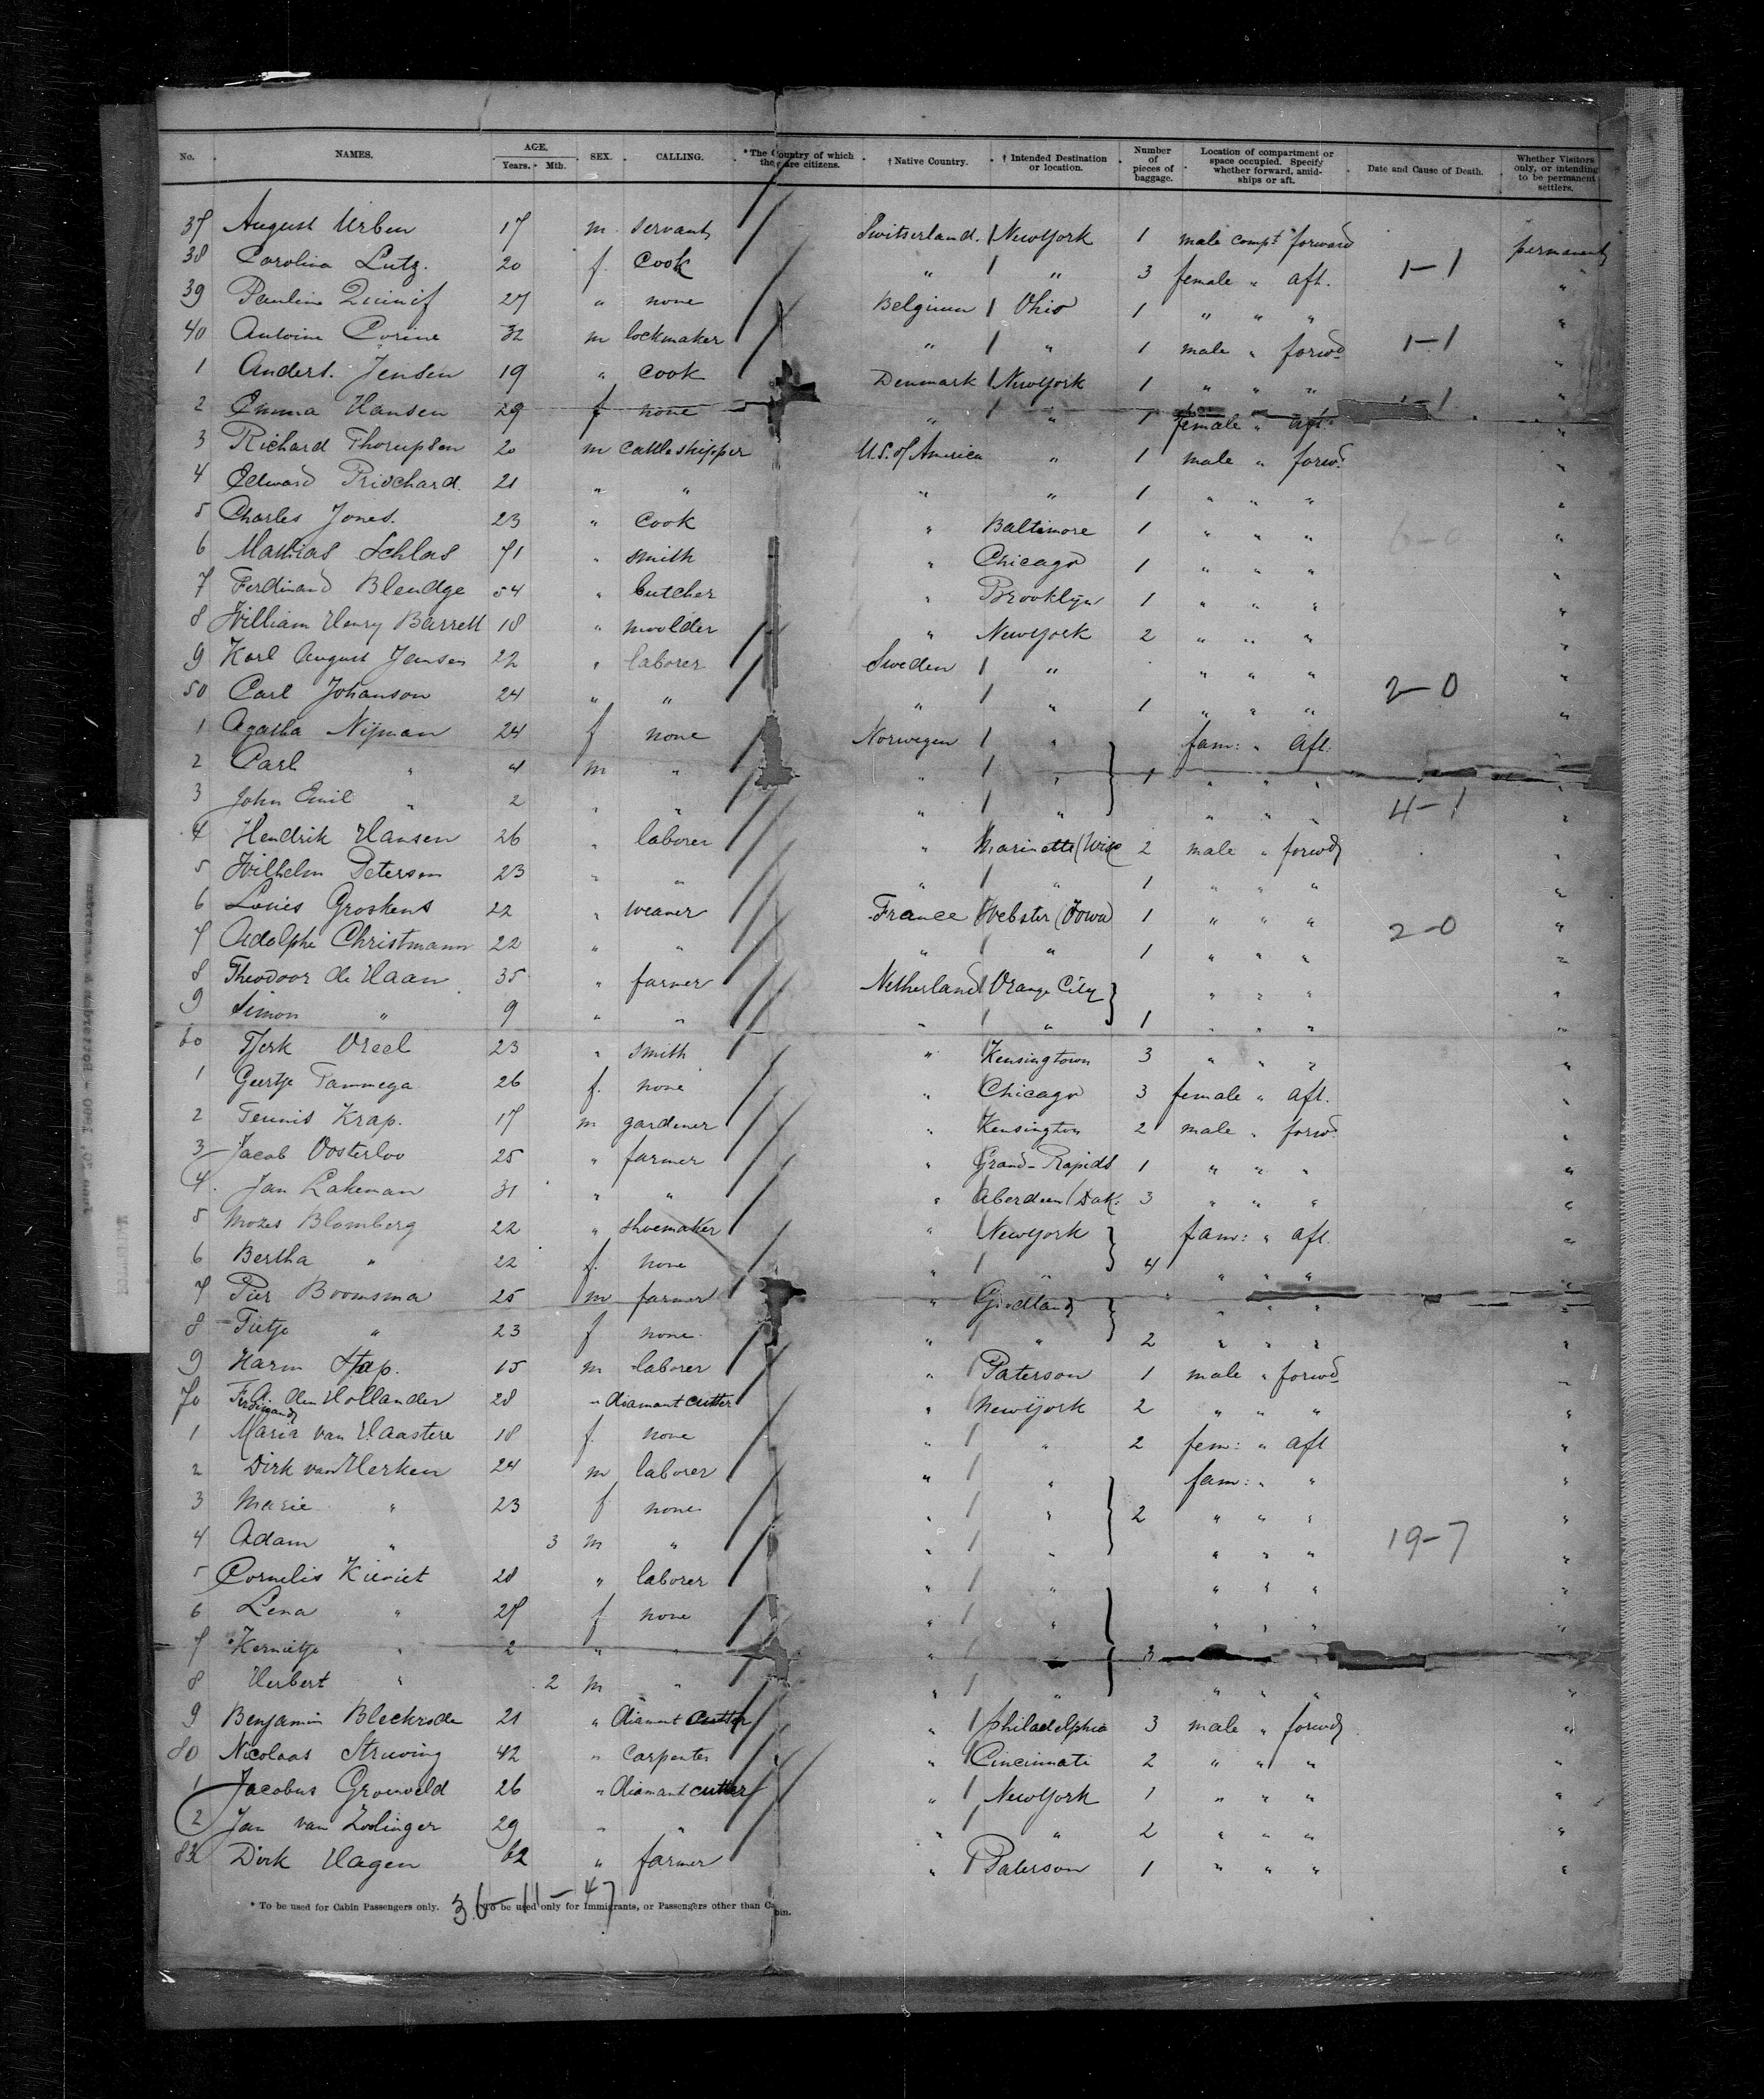 No. NAMES. AGE. Years. Mth. SEX. CALLING. * The Country of which they are citizens. † Native Country. † Intended Destination or location. Number of pieces of baggage. Location of compartment or space occupied. Specify whether forward, amidships or aft. Date and Cause of Death. Whether Visitors only, or intending to be permanent settlers.
37 August Urben 17 m servant Switserland. NewYork 1 male compt forward permanent
38 Carolina Lutz. 20 f. Cook " " 3 female " aft. 1-1 "
39 Pauline 27 " none Belgium Ohio 1 " " " "
40 Antoine Corine 32 m lockmaker " " 1 male " forwd 1-1 "
1 Anders. Jensen 19 " Cook Denmark NewYork 1 " " " "
2 Emma Hansen 29 f none " " 1 female " aft. 1-1 "
3 Richard Thorupson 20 m cattleshipper U.S. of America " 1 male " forwd "
4 Edward Pridchard. 21 " " " " 1 " " " "
5 Charles Jones. 23 " Cook " Baltimore 1 " " " 6-0 "
6 Mathias Schlas 71 " smith " Chicago 1 " " " "
7 Ferdinand Blendge 54 " butcher " Brooklyn 1 " " " "
8 William Henry Barrett 18 " moulder " NewYork 2 " " " "
9 Karl August Jansen 22 " laborer Sweden " " " " "
50 Carl Johanson 24 " " " " 1 " " " 2-0 "
1 Agatha Nijman 24 f none Norwegen " fam: " aft.
2 Carl " 4 m " " " 1 " " "
3 John Emil " 2 " " " " " " " 4-1 "
4 Hendrik Hansen 26 " laborer " Marinette (Wisc 2 male " forwd "
5 Wilhelm Peterson 23 " " " " 1 " " " "
6 Louis Groskens 22 " weaver France Webster (Iowa) 1 " " " 2-0 "
7 Adolphe Christmann 22 " " " " 1 " " " "
8 Theodoor de Haan 35 " farmer Netherland Orange City " " " "
9 Simon " 9 " " " " 1 " " " "
60 Tjerk Vreel 23 " smith " Kensingtown 3 " " " "
1 Geertje Tammega 26 f. none " Chicago 3 female " aft. "
2 Teunis Krap. 17 m gardener " Kensington 2 male " forwd "
3 Jacob Oosterloo 25 " farmer " Grand-Rapids 1 " " " "
4. Jan Lakeman 31 " " " Aberdeen (Dak. 3 " " " "
5 Mozes Blomberg 22 " shoemaker " NewYork fam: " aft. "
6 Bertha " 22 f. none " " 4 " " " "
7 Pier Boomsma 25 m farmer " " " " "
8 Tietje " 23 f none. " " 2 " " " "
9 Harm Stap. 15 m laborer " Paterson 1 male " forwd "
70 Ferdinand A. den Hollander 28 " diamant cutter " NewYork 2 " " " "
1 Maria van Haastere 18 f. none " " 2 fem: " aft "
2 Dirk van Herken 24 m laborer " " fam: " " "
3 Marie " 23 f none " " 2 " " " "
4 Adam " 3 m " " " " " " 19-7 "
5 Cornelis Kieviet 28 " laborer " " " " " "
6 Lena " 27 f none " " " " "
7 Kernietje " 2 " " " " 3
8 Herbert " 2 m " " " " " " "
9 Benjamin Bleekrode 21 " diamant cutter " philadelphia 3 male " forwd "
80 Nicolaas Struving 42 " Carpenter " Cincinnati 2 " " " "
1 Jacobus Groeneveld 26 " diamant cutter " NewYork 1 " " " "
2 Jan van Zolinger 29 " " " " 2 " " " "
83 Dirk Hagen 62 " farmer " Paterson 1 " " " "
* To be used for Cabin Passengers only. † To be used only for Immigrants, or Passengers other than Cabin.
36-11-47